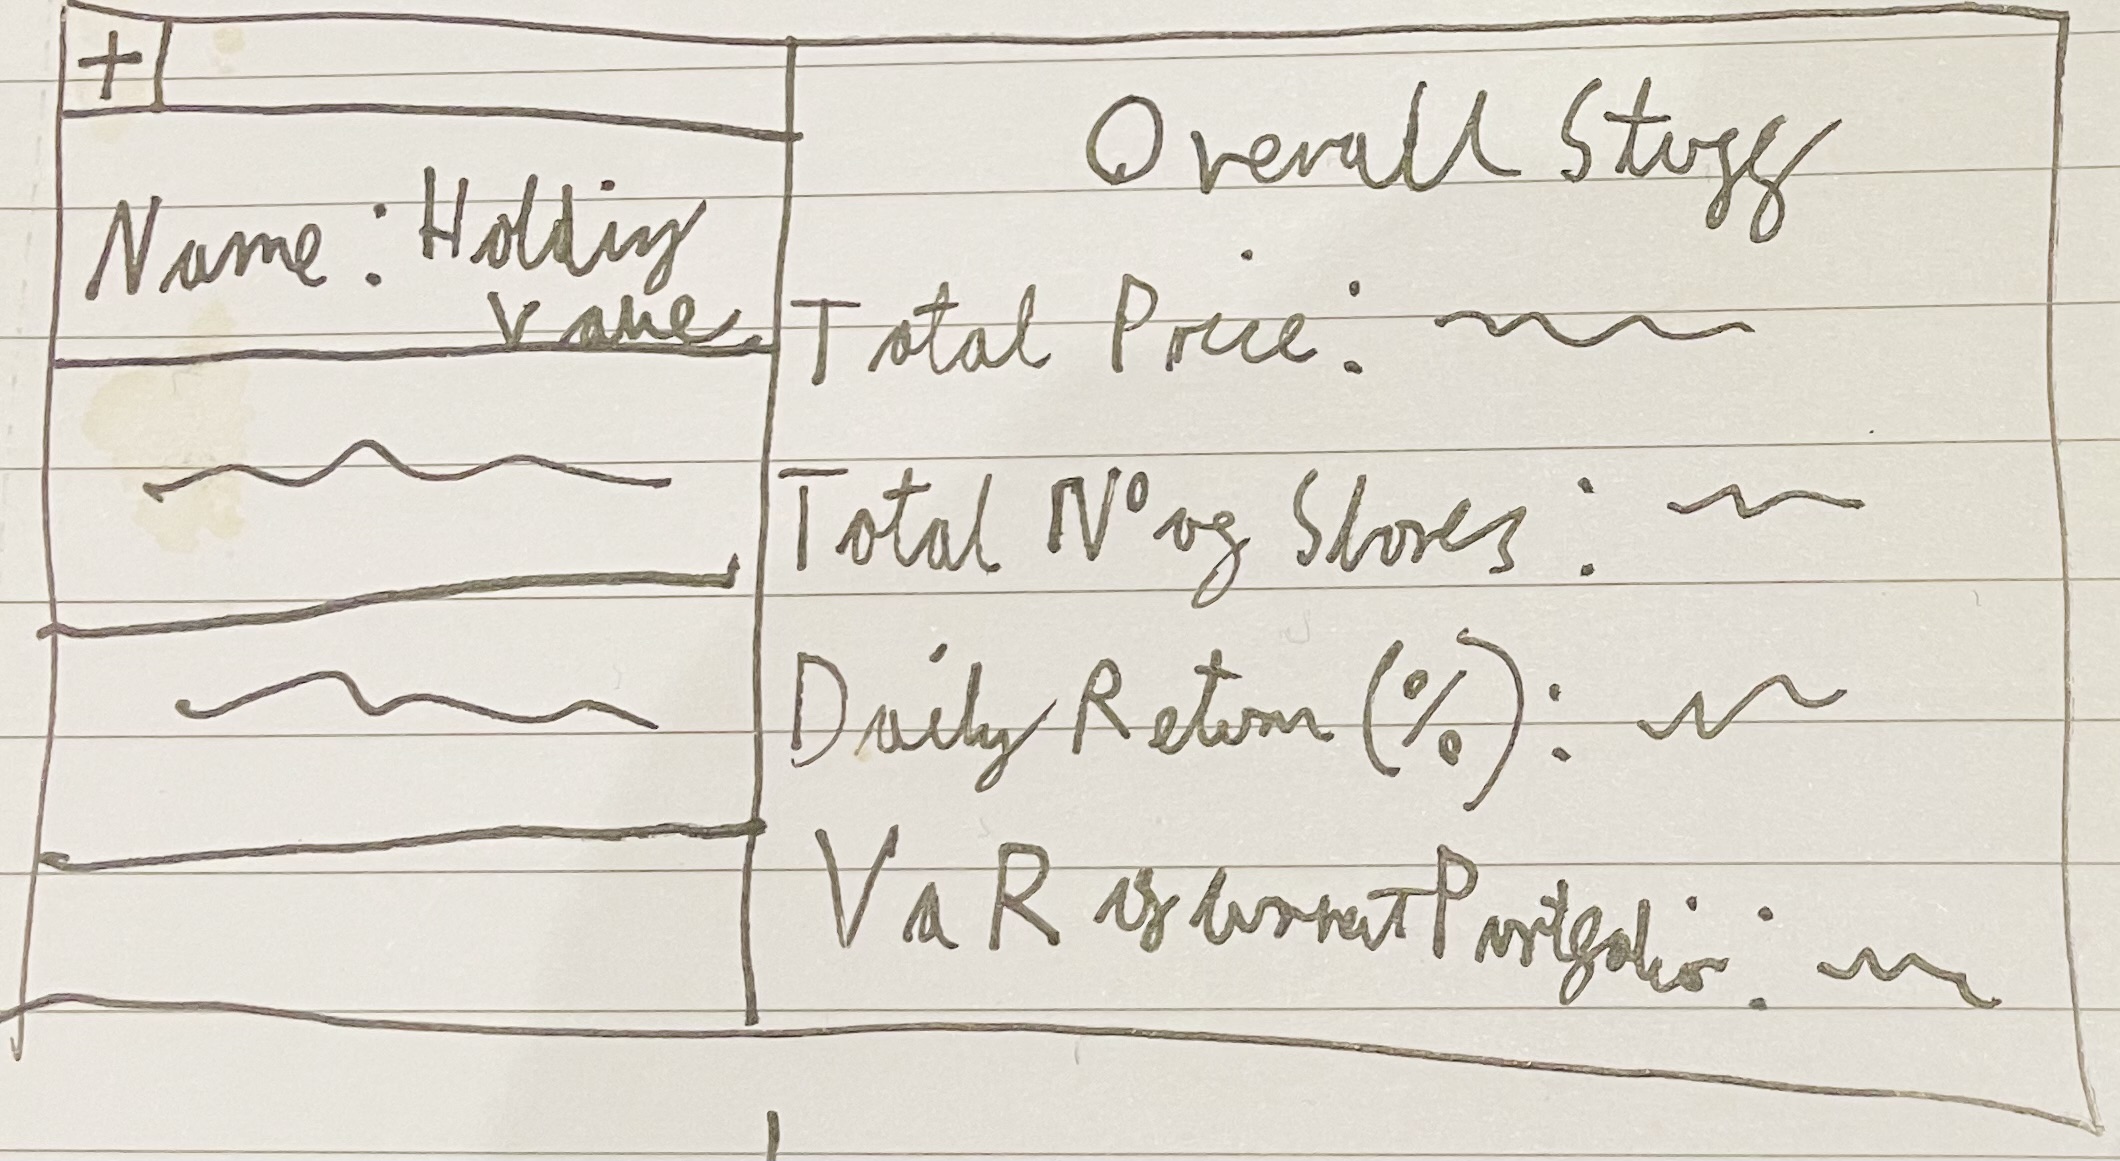 +
Name: Holding
Value
Overall Stuff
Total Price:
Total Nº of Shares:
Daily Return (%):
VaR of current Portfolio: